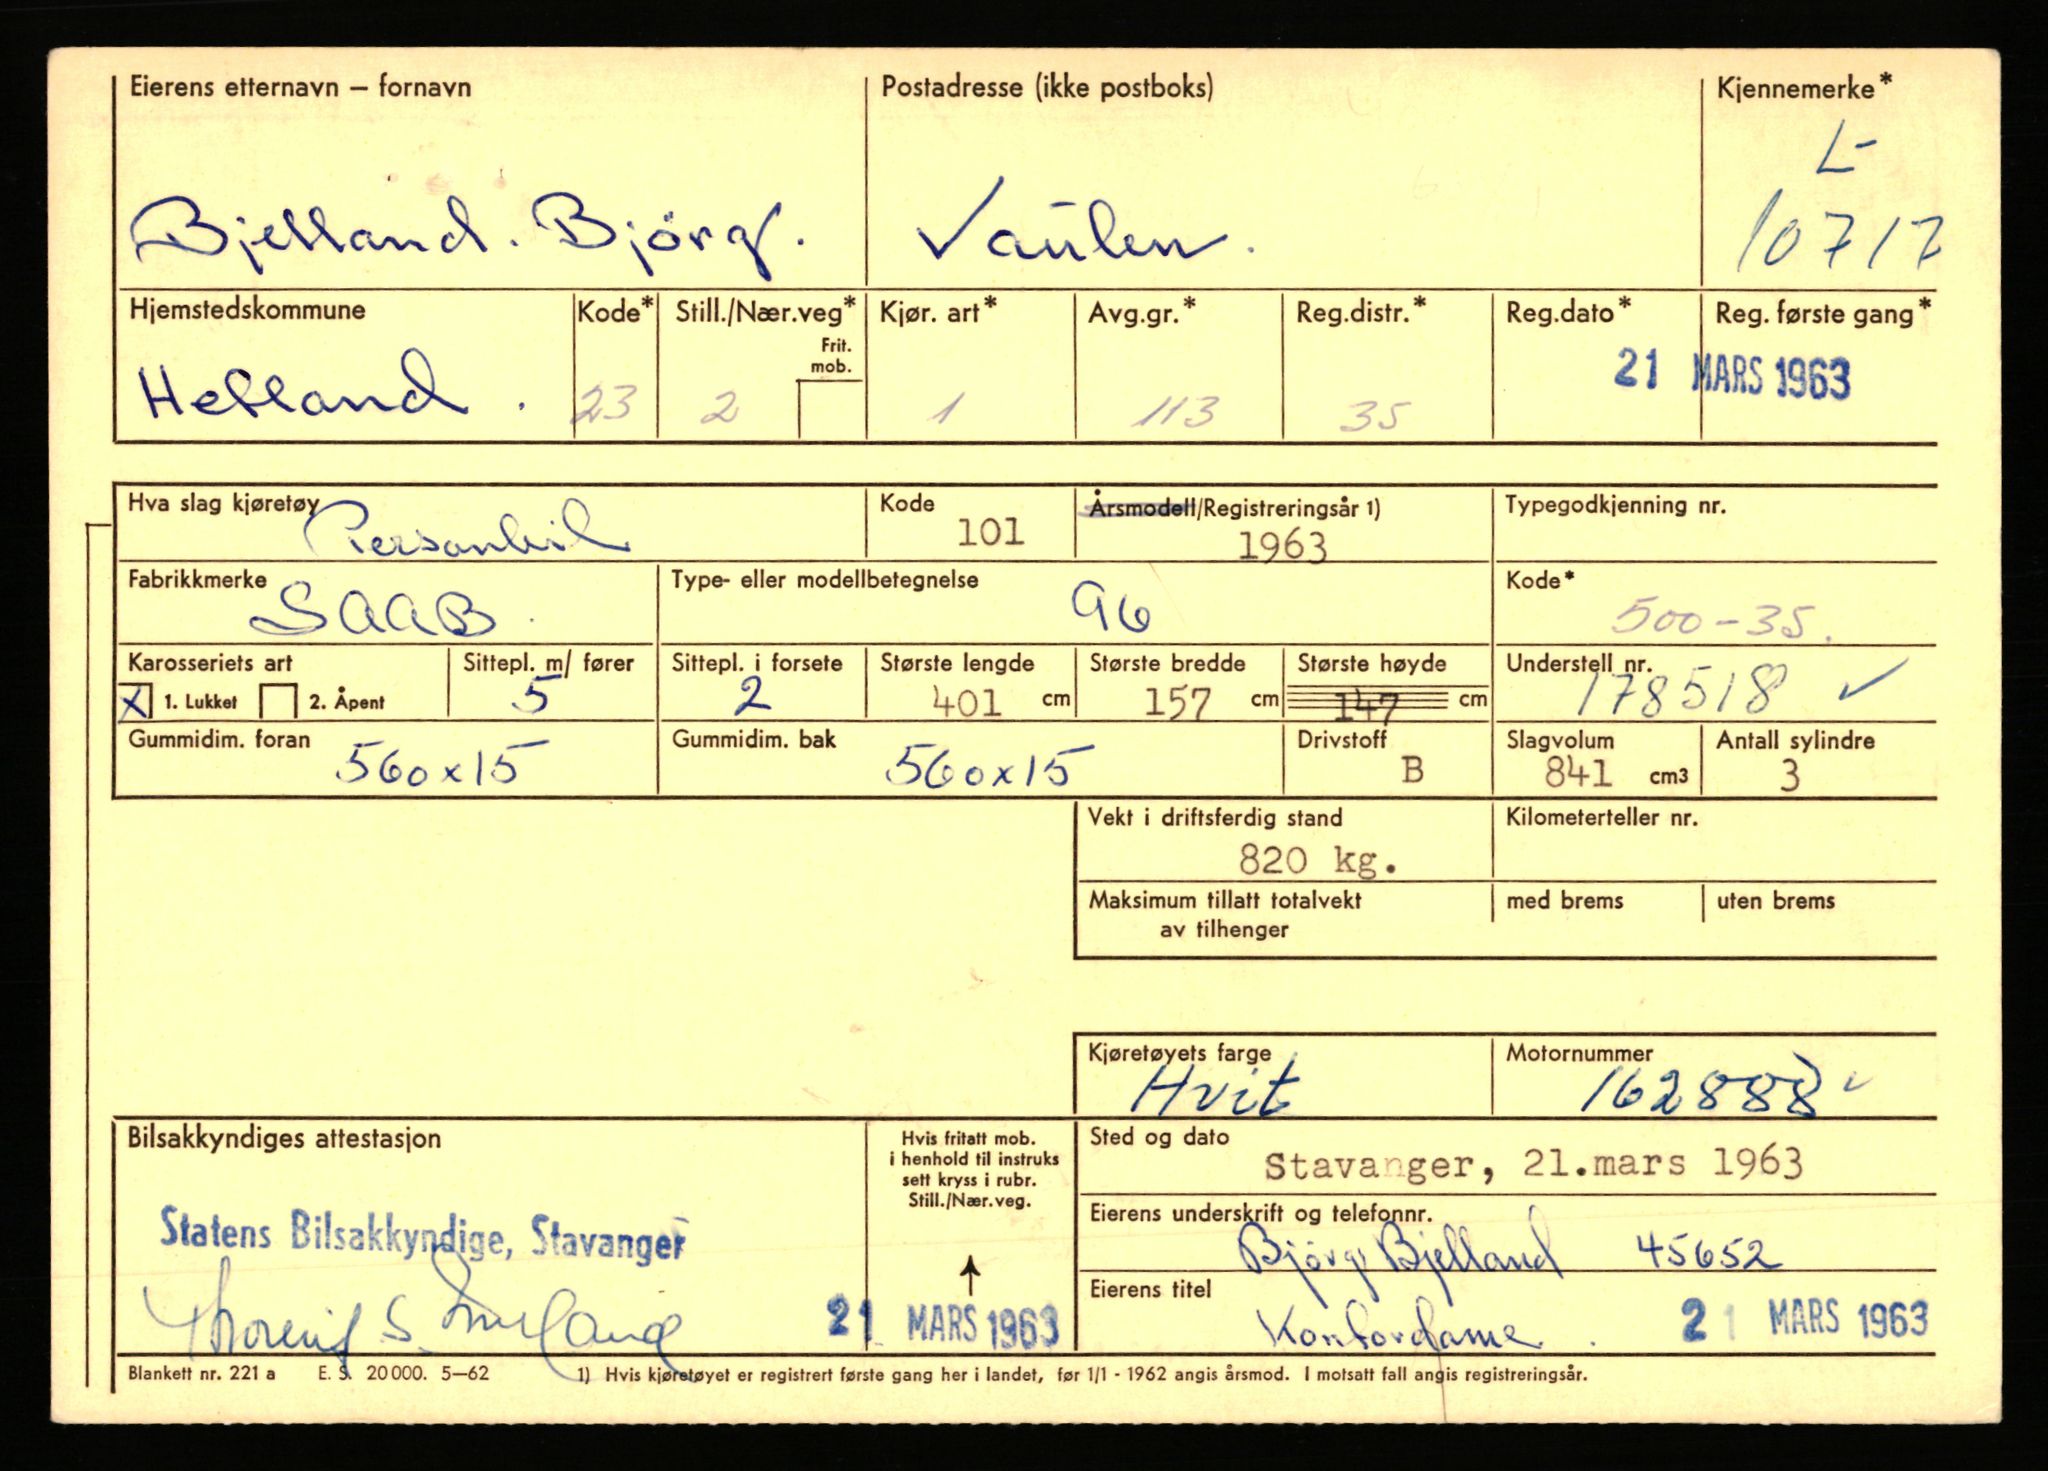 Eierens etternavn – fornavn Postadresse (ikke postboks) Kjennemerke*
L-
Bjelland. Björg. Vaulen. 10717
Hjemstedskommune Kode* Still./Nær.veg* Kjør. art* Avg.gr.* Reg.distr.* Reg.dato* Reg. første gang*
Frit.
mob.
Helland. 23 2 1 113 35 21 MARS 1963
Hva slag kjøretøy Kode Årsmodell/Registreringsår 1) Typegodkjenning nr.
Personbil 101 1963
Fabrikkmerke Type- eller modellbetegnelse Kode*
SAAB. 96 500-35.
Karosseriets art Sittepl. m/ fører Sittepl. i forsete Største lengde Største bredde Største høyde Understell nr.
X 1. Lukket 2. Åpent 5 2 401 cm 157 cm 147 cm 178518 ✓
Gummidim. foran Gummidim. bak Drivstoff Slagvolum Antall sylindre
560x15 560x15 B 841 cm3 3
Vekt i driftsferdig stand Kilometerteller nr.
820 kg.
Maksimum tillatt totalvekt med brems uten brems
av tilhenger
Kjøretøyets farge Motornummer
Hvit 162888 ✓
Bilsakkyndiges attestasjon Hvis fritatt mob. Sted og dato
i henhold til instruks Stavanger, 21.mars 1963
sett kryss i rubr.
Still./Nær.veg.
Eierens underskrift og telefonnr.
Statens Bilsakkyndige, Stavanger Björg Bjelland 45652
Eierens titel
21 MARS 1963 Kontordame. 21 MARS 1963
Blankett nr. 221 a E. S. 20 000. 5–62 1) Hvis kjøretøyet er registrert første gang her i landet, før 1/1 - 1962 angis årsmod. I motsatt fall angis registreringsår.